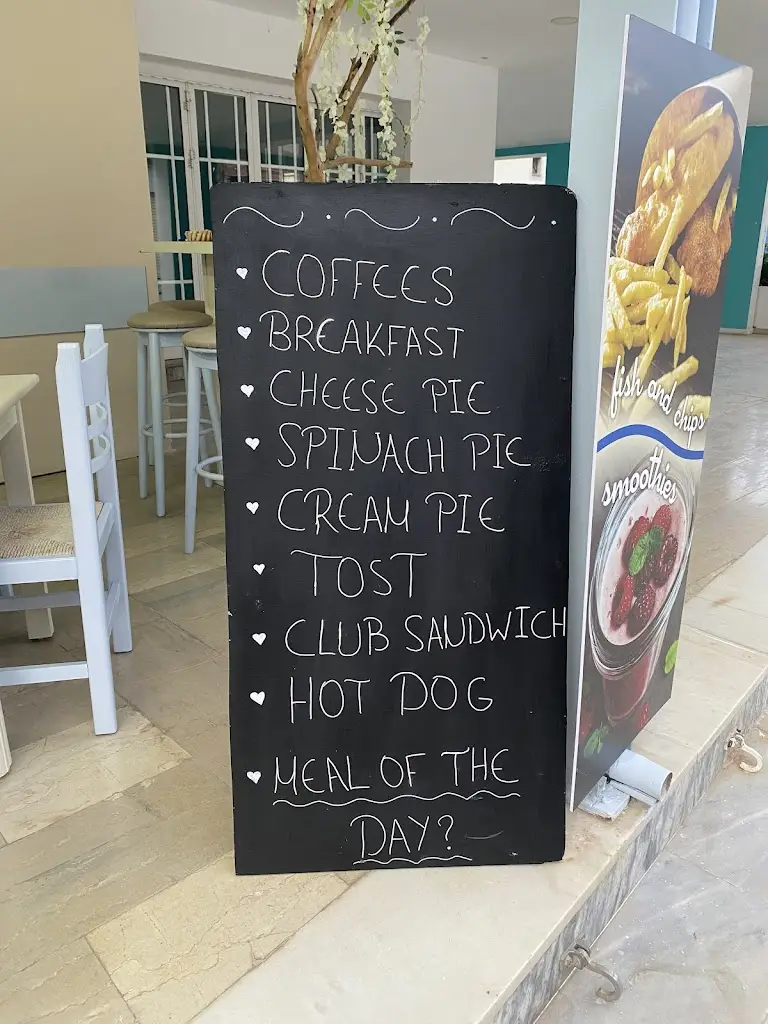 COFFEES
BREAKFAST
CHEESE PIE
SPINACH PIE
CREAM PIE
TOST
CLUB SANDWICH
HOT DOG
MEAL OF THE
DAY?
fish and chips
smoothies